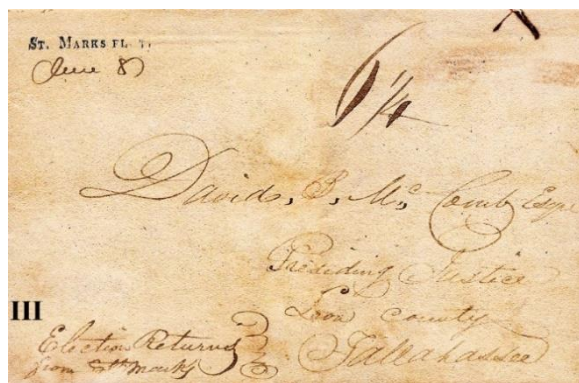 ST. MARKS FL. T.
June 8
6 1/4
David, B, Mc, Comb Esqr
Presiding Justice
Leon County
Tallahassee
III
Election Returns
from St Marks